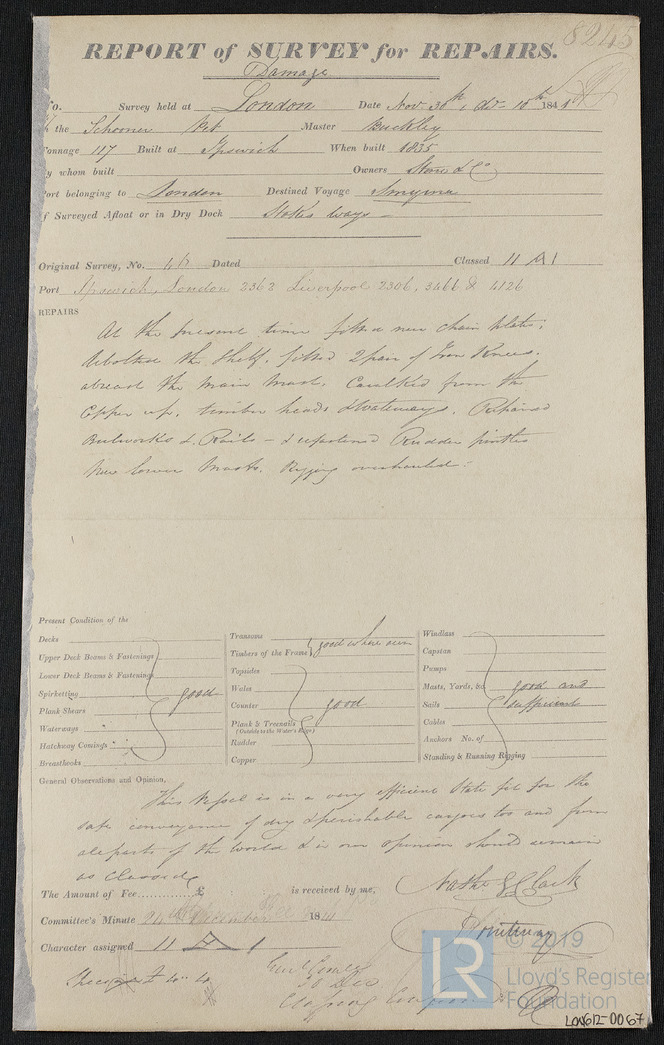 8245
REPORT of SURVEY for REPAIRS.
Damage
No. Survey held at London Date Nov 30th, Dec 10th 1841
the Schooner Pet Master Buckley
Tonnage 117 Built at Ipswich When built 1835
By whom built Owners Stow & Co
Port belonging to London Destined Voyage Smyrna
If Surveyed Afloat or in Dry Dock Stokes Ways
Original Survey, No. Dated Classed 11 A 1
Port Ipswich, London 2362 Liverpool 2306, 3466 & 4126
REPAIRS
At the present time fitted new chain plates,
rebolted the Shelf, fitted 2 pair of Iron Knees.
abreast the Main Mast, Caulked from the
Copper up, timber heads & Waterways. Repaired
Bulworks & Rails - & Rudder pintles
New lower Masts. Rigging overhauled.
Present Condition of the
Decks
Upper Deck Beams & Fastenings
Lower Deck Beams & Fastenings
Spirketting good
Plank Shears
Waterways
Hatchway Comings
Breasthooks
Transoms
Timbers of the Frame good where seen
Topsides
Wales
Counter good
Plank & Treenails
(Outside to the Water's Edge)
Rudder
Copper
Windlass
Capstan
Pumps
Masts, Yards, &c. good and
Sails sufficient
Cables
Anchors No. of
Standing & Running Rigging
General Observations and Opinion,
This Vessel is in a very efficient State fit for the
safe conveyance of dry & perishable cargoes to and from
all parts of the world & in our opinion should remain
as Classed
The Amount of Fee £ is received by me,
Nathl G Clark
Committee's Minute 24th December 1841
Character assigned 11 A 1
© 2019
Lloyd's Register
Foundation
LR
LON612-0067